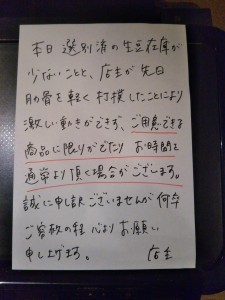 本日 選別済の生豆在庫が
少ないことと、店主が先日
肋骨を軽く打撲したことにより
激しい動きができず、ご用意できる
商品に限りがでたり お時間を
通常より頂く場合がございます。
誠に申し訳ございませんが何卒
ご容赦の程 心よりお願い
申し上げます。 店主